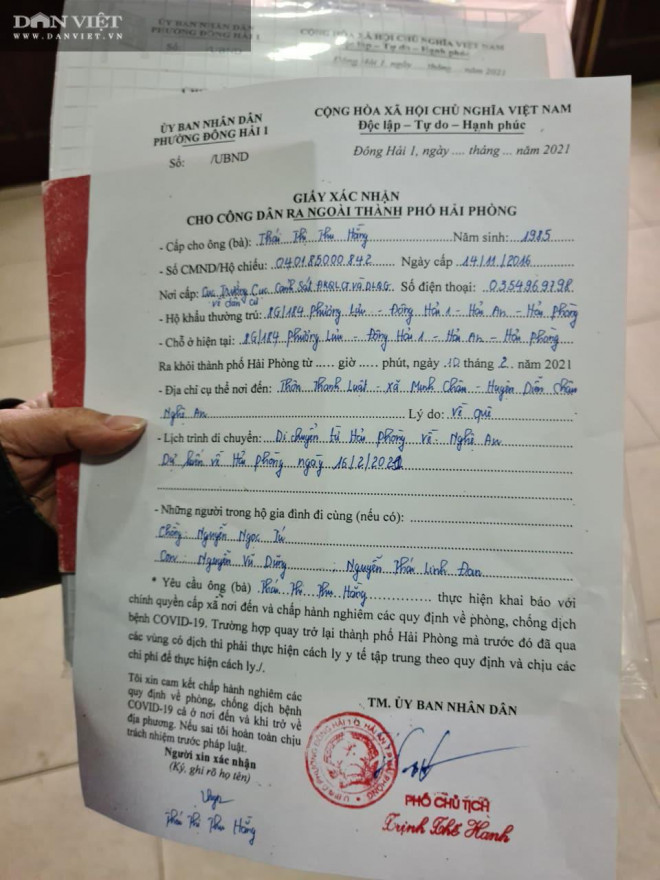 DÂN VIỆT
WWW.DANVIET.VN
ỦY BAN NHÂN DÂN
PHƯỜNG ĐÔNG HẢI 1
Số: /UBND
CỘNG HÒA XÃ HỘI CHỦ NGHĨA VIỆT NAM
Độc lập – Tự do – Hạnh phúc
Đông Hải 1, ngày .... tháng ... năm 2021
ỦY BAN NHÂN DÂN
PHƯỜNG ĐÔNG HẢI 1
Số: /UBND
CỘNG HÒA XÃ HỘI CHỦ NGHĨA VIỆT NAM
Độc lập – Tự do – Hạnh phúc
Đông Hải 1, ngày .... tháng ... năm 2021
GIẤY XÁC NHẬN
CHO CÔNG DÂN RA NGOÀI THÀNH PHỐ HẢI PHÒNG
- Cấp cho ông (bà): Thái Thị Thu Hằng Năm sinh: 1985
- Số CMND/Hộ chiếu: 040185000842 Ngày cấp 14/11/2016
Nơi cấp: Cục Trưởng Cục Cảnh Sát ĐKQLCT và DLQG Số điện thoại: 0354969798
về dân cư
- Hộ khẩu thường trú: 8G/184 Phương Lưu - Đông Hải 1 - Hải An - Hải Phòng
- Chỗ ở hiện tại: 8G/184 Phương Lưu - Đông Hải 1 - Hải An - Hải Phòng
Ra khỏi thành phố Hải Phòng từ ..... giờ ..... phút, ngày 10 tháng 2 năm 2021
- Địa chỉ cụ thể nơi đến: Thôn Thanh Luật - xã Minh Châu - Huyện Diễn Châu
Nghệ An Lý do: về quê
- Lịch trình di chuyển: Di chuyển từ Hải Phòng về Nghệ An
Dự kiến về Hải Phòng ngày 16/2/2021
- Những người trong hộ gia đình đi cùng (nếu có):
Chồng: Nguyễn Ngọc Tú
Con: Nguyễn Vũ Dũng Nguyễn Thái Linh Đan
* Yêu cầu ông (bà) Thái Thị Thu Hằng thực hiện khai báo với
chính quyền cấp xã nơi đến và chấp hành nghiêm các quy định về phòng, chống dịch
bệnh COVID-19. Trường hợp quay trở lại thành phố Hải Phòng mà trước đó đã qua
các vùng có dịch thì phải thực hiện cách ly y tế tập trung theo quy định và chịu các
chi phí để thực hiện cách ly./.
Tôi xin cam kết chấp hành nghiêm các
quy định về phòng, chống dịch bệnh
COVID-19 cả ở nơi đến và khi trở về
địa phương. Nếu sai tôi hoàn toàn chịu
trách nhiệm trước pháp luật.
Người xin xác nhận
(Ký, ghi rõ họ tên)
Thái Thị Thu Hằng
TM. ỦY BAN NHÂN DÂN
PHÓ CHỦ TỊCH
Trịnh Thế Hanh